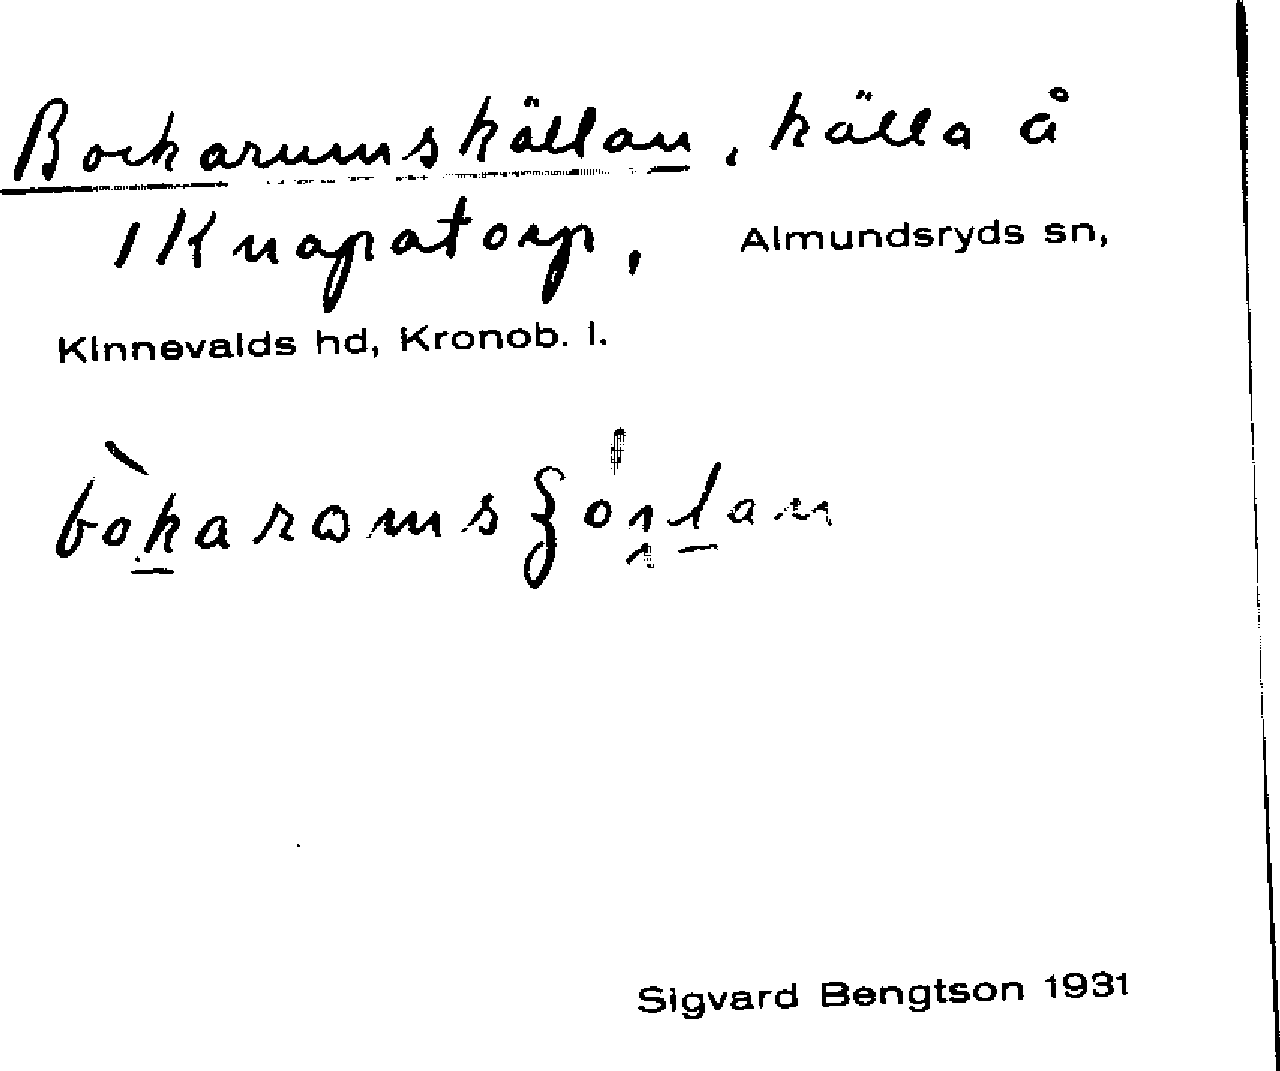 Bockarumskällan, källa å
1 Knapatorp, Almundsryds sn,
Kinnevalds hd, Kronob. l.
Sigvard Bengtson 1931